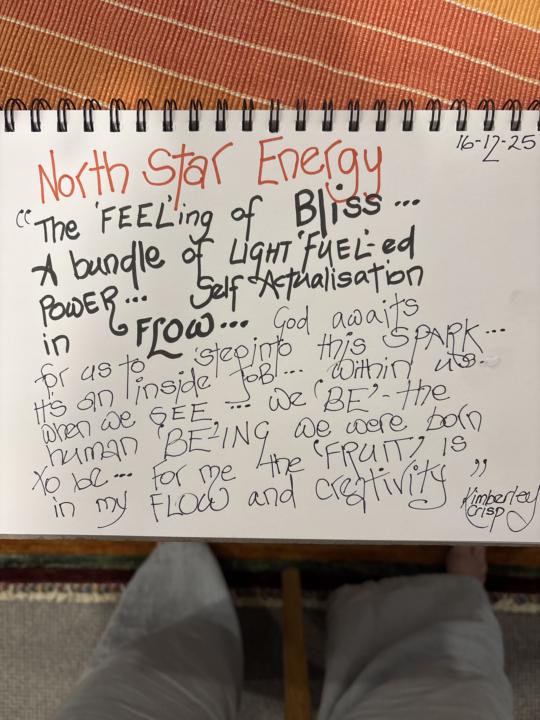 16-12-25
North Star Energy
"The 'FEEL'ing of Bliss...
A bundle of LIGHT 'FUEL'-ed
POWER... Self Actualisation
in FLOW... God awaits
for us to 'step into' this SPARK...
It's an inside JOB... within us...
when we SEE... we 'BE' - the
human 'BE'ING we were born
to be... For me the 'FRUIT' is
in my FLOW and creativity"
Kimberley
Crisp